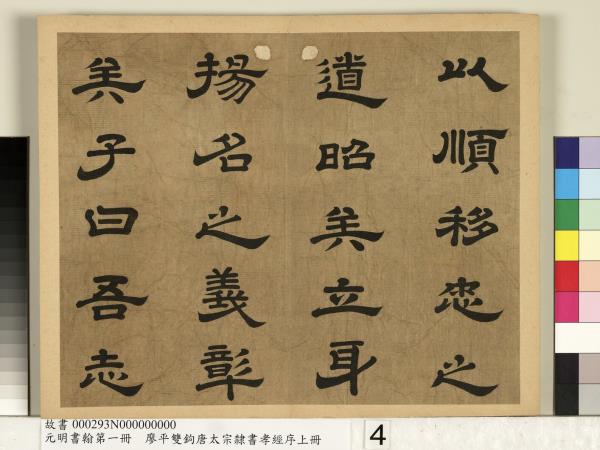 以順移忠之
道昭矣立身
揚名之義彰
矣子曰吾志
故書 000293N000000000
元明書翰第一冊　廖平雙鉤唐太宗隸書孝經序上冊
4